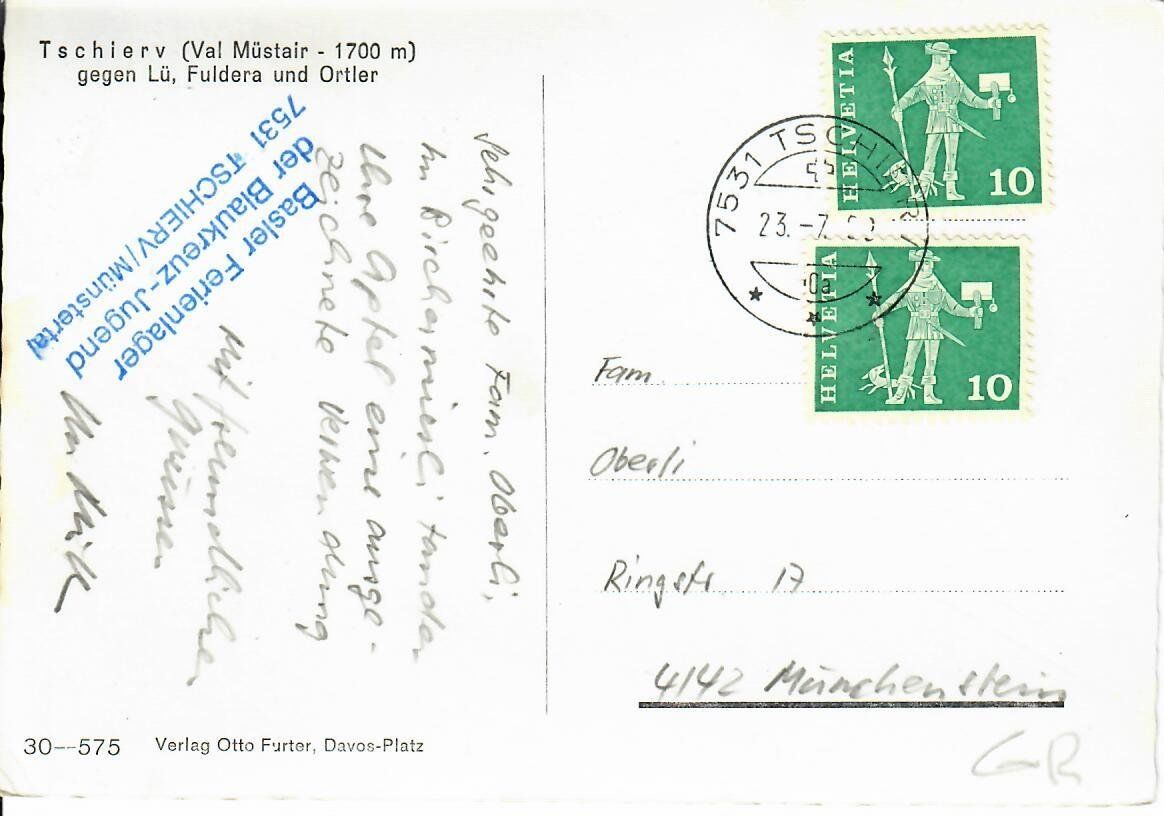 Tschierv (Val Müstair - 1700 m)
gegen Lü, Fuldera und Ortler
Basler Ferienlager
der Blaukreuz-Jugend
7531 TSCHIERV/Münstertal
Sehr geehrte Fam. Oberli,
Im Birchermüesli fanden
Ihre Äpfel eine ausge-
zeichnete Verwendung
Mit freundlichen
Grüssen
HELVETIA
10
HELVETIA
10
7531 TSCHIERV
23.-7.
Fam.
Oberli
Ringstr. 17
4142 Münchenstein
30--575
Verlag Otto Furter, Davos-Platz
GR